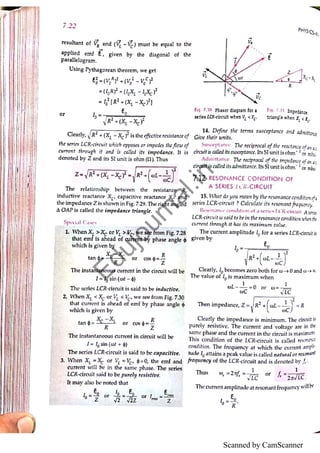 7·22
PHYSICS
resultant of V⃗R and (V⃗L − V⃗C) must be equal to the
applied emf ℰ⃗, given by the diagonal of the
parallelogram.
Using Pythagorean theorem, we get
or
Clearly, √R² + (XL − XC)² is the effective resistance of
the series LCR-circuit which opposes or impedes the flow of
current through it and is called its impedance. It is
denoted by Z and its SI unit is ohm (Ω). Thus
Z = √R² + (XL − XC)² = √R² + (ωL − 1/ωC)²
The relationship between the resistance
inductive reactance XL, capacitive reactance XC and
the impedance Z is shown in Fig. 7.29. The right angled
Δ OAP is called the impedance triangle.
Special Cases
1. When XL > XC, or VL > VC, we see from Fig. 7.28
that emf is ahead of current by phase angle φ
which is given by
tan φ = (XL − XC)/R or cos φ = R/Z
The instantaneous current in the circuit will be
I = I₀ sin (ωt − φ)
The series LCR-circuit is said to be inductive.
2. When XL < XC, or VL < VC, we see from Fig. 7.30
that current is ahead of emf by phase angle φ
which is given by
tan φ = (XC − XL)/R or cos φ = R/Z
The instantaneous current in circuit will be
I = I₀ sin (ωt + φ)
The series LCR-circuit is said to be capacitive.
3. When XL = XC, or VL = VC, φ = 0, the emf and
current will be in the same phase. The series
LCR-circuit is said to be purely resistive.
It may also be noted that
Fig. 7.30 Phasor diagram for a
series LCR-circuit when VL < VC.
Fig. 7.31 Impedance
triangle when XL < XC.
14. Define the terms susceptance and admittance.
Give their units.
Susceptance. The reciprocal of the reactance of an a.c.
circuit is called its susceptance. Its SI unit is ohm⁻¹ or mho.
Admittance. The reciprocal of the impedance of an a.c.
circuit is called admittance. Its SI unit is ohm⁻¹ or mho.
7.12 RESONANCE CONDITION OF
A SERIES LCR-CIRCUIT
15. What do you mean by the resonance condition of a
series LCR-circuit ? Calculate its resonant frequency.
Resonance condition of a series LCR-circuit. A series
LCR-circuit is said to be in the resonance condition when the
current through it has its maximum value.
The current amplitude I₀ for a series LCR-circuit is
given by
Clearly, I₀ becomes zero both for ω → 0 and ω → ∞.
The value of I₀ is maximum when
ωL − 1/ωC = 0 or ω = 1/√LC
Then impedance, Z = √R² + (ωL − 1/ωC)² = R
Clearly the impedance is minimum. The circuit is
purely resistive. The current and voltage are in the
same phase and the current in the circuit is maximum.
This condition of the LCR-circuit is called resonance
condition. The frequency at which the current ampli-
tude I₀ attains a peak value is called natural or resonant
frequency of the LCR-circuit and is denoted by fr.
Thus ωr = 2πfr = 1/√LC or fr = 1/2π√LC
The current amplitude at resonant frequency will be
I₀ = ℰ₀/R
Scanned by CamScanner